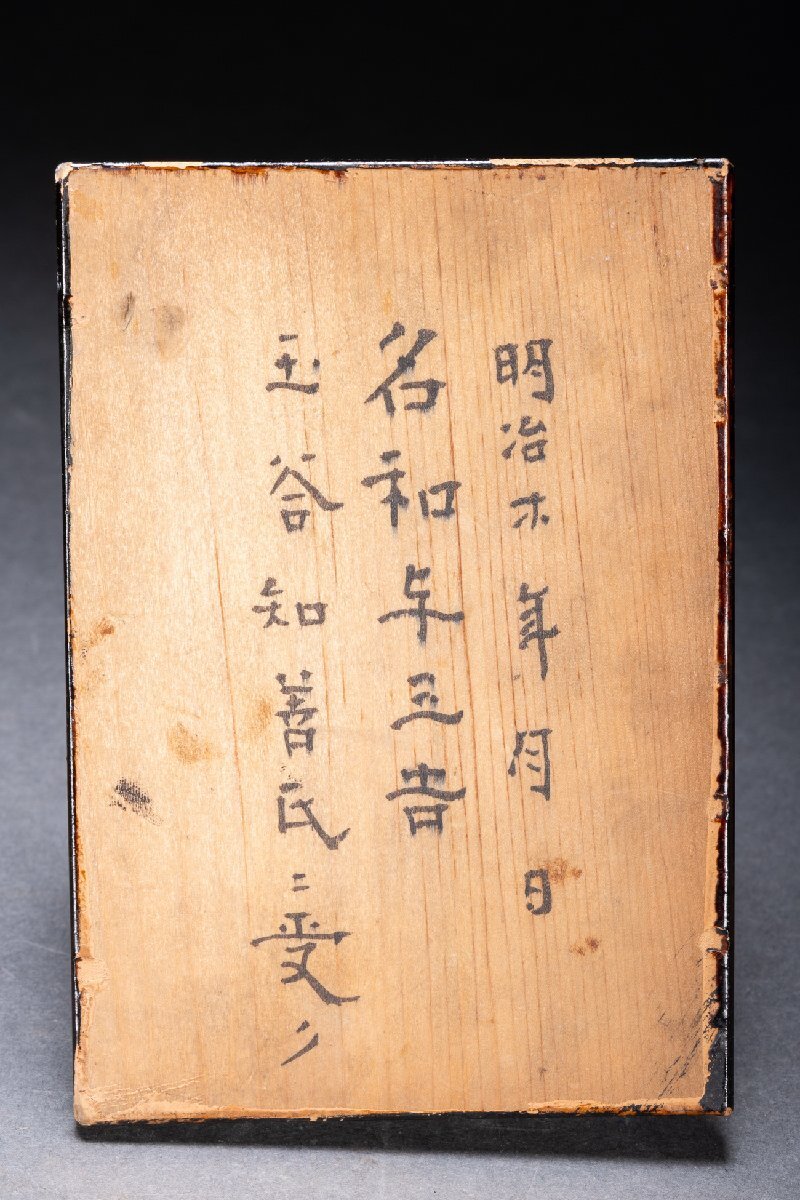 明治木年月日
名和与三吉
玉谷知善氏ニ受ク